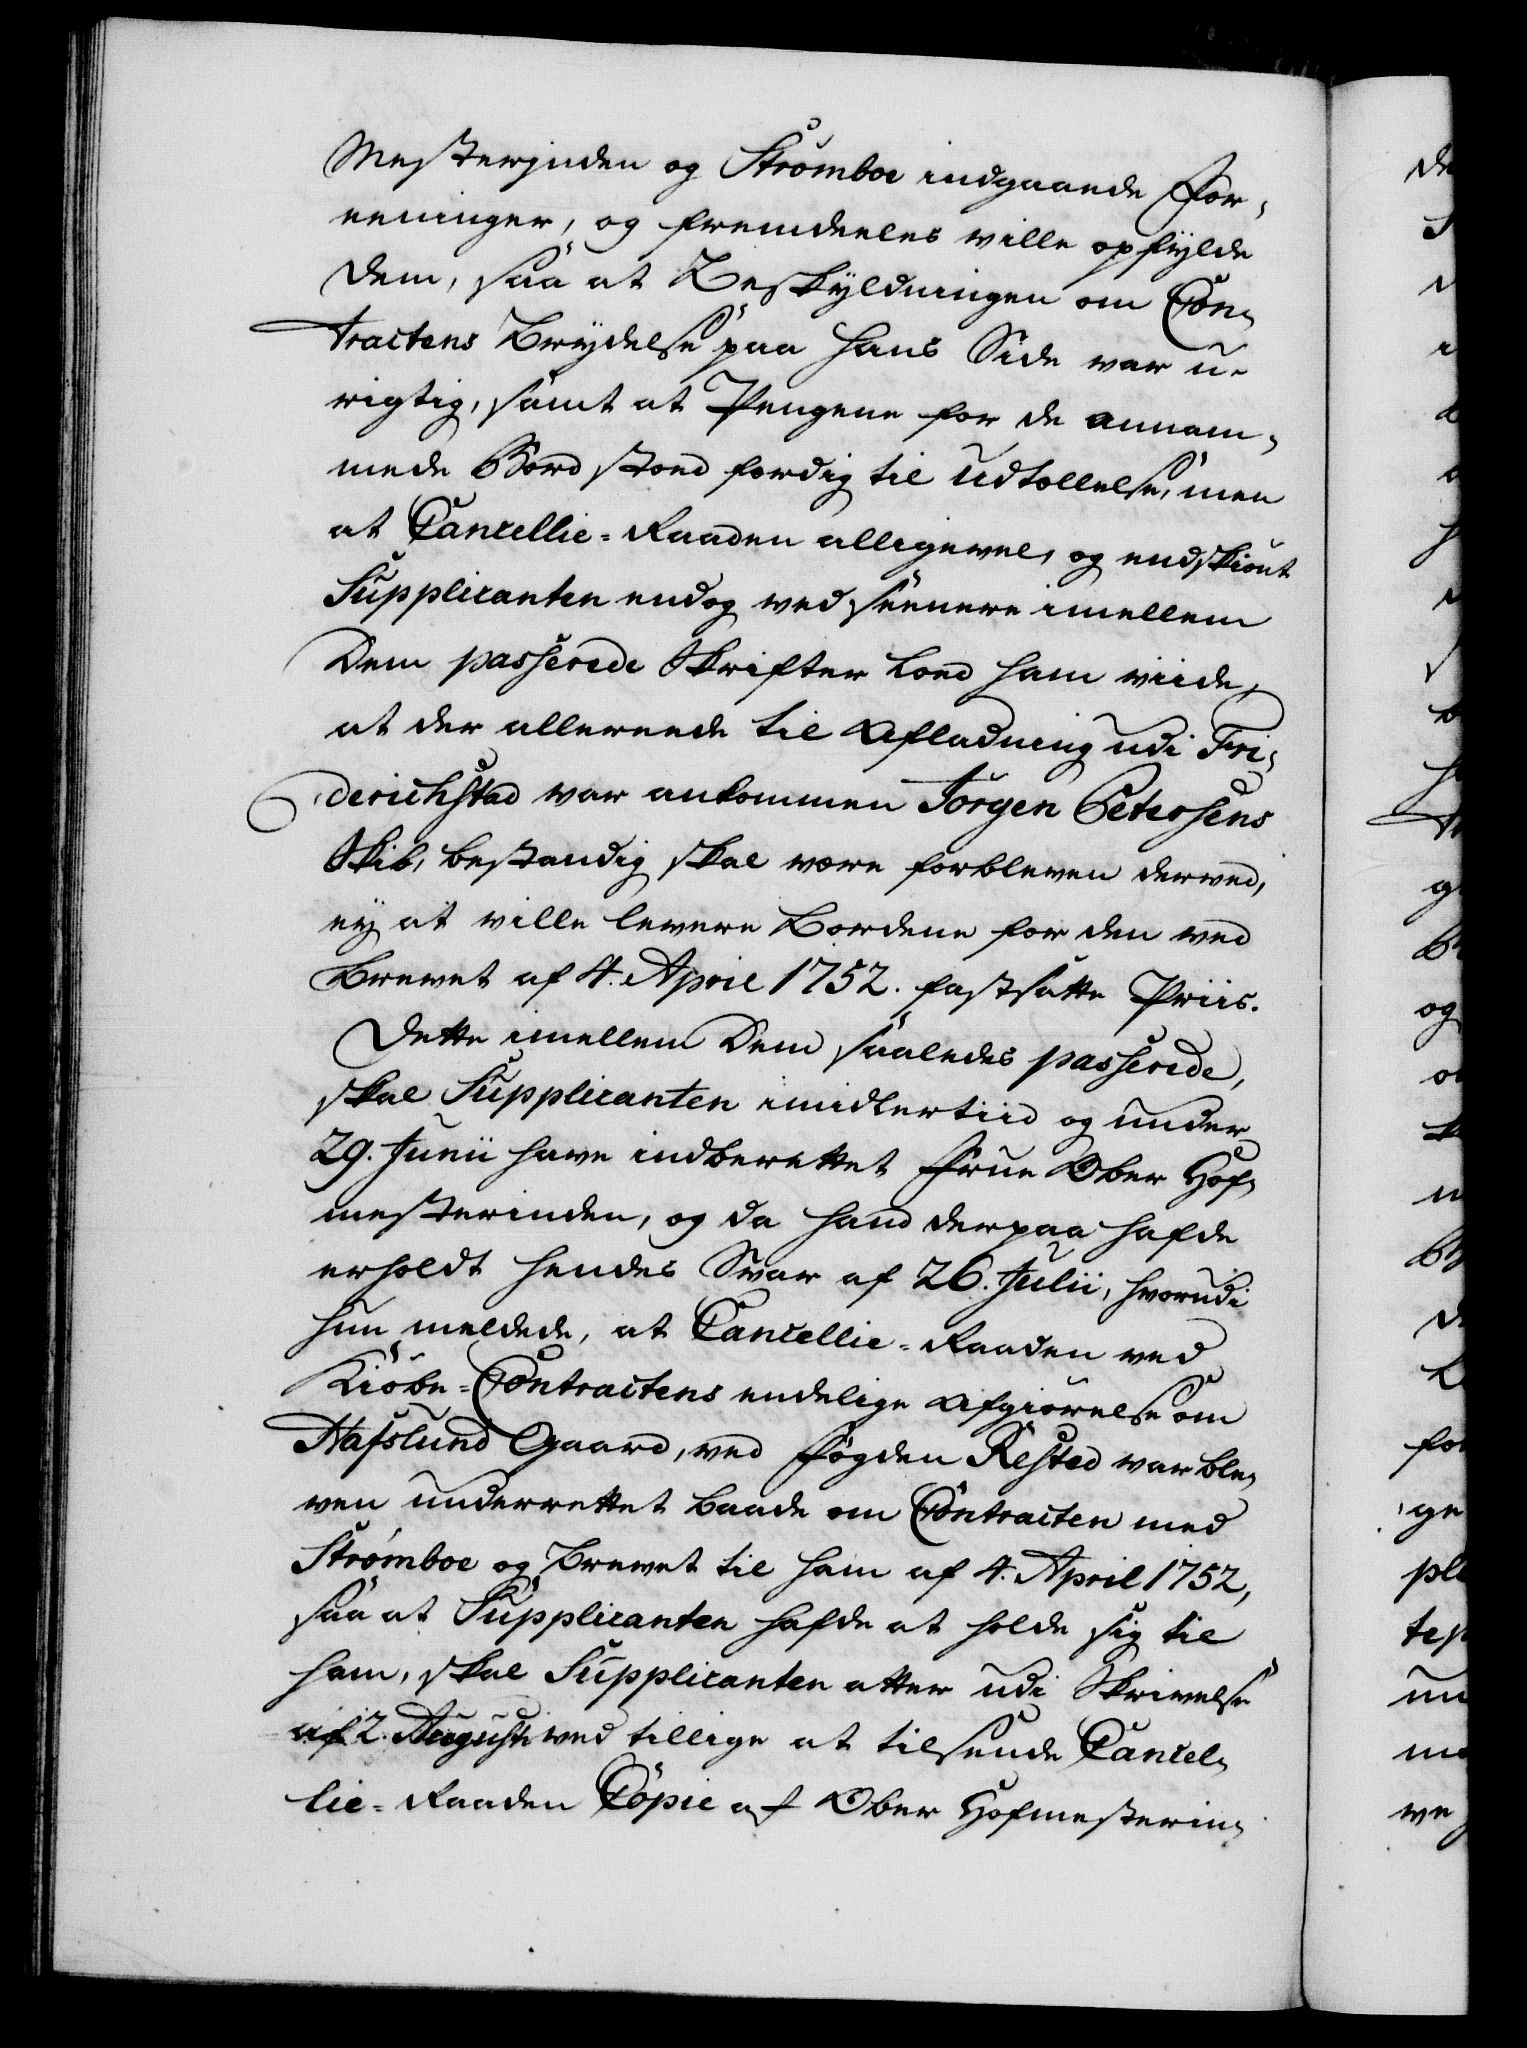 Mesterinden og Strømboe indgaaende For-
eeninger, og fremdeeles ville opfylde
dem, saa at Beskyldningen om Con-
tractens Brydelse paa hans Side var u-
rigtig, samt at Pengene for de annam-
mede Bord stoed færdig til Udtællelse, men
at Cancellie-Raaden alligevel, og endskiønt
Supplicanten endog ved seenere imellem
Dem passerede Skrifter loed ham viide,
at der allereede til Afladning udi Fri-
derichstad var ankommen Jørgen Petersens
Skib, bestandig skal være forbleven derved,
ey at ville levere Bordene for den ved
Brevet af 4. April 1752. fastsatte Priis.
Dette imellem Dem saaledes passerede,
skal Supplicanten imidlertiid og under
29. Junii have indberettet Frue Ober Hof-
mesterinden, og da hand derpaa hafde
erholdt hendes Svar af 26. Julii, hvorudi
hun meldede, at Cancellie-Raaden ved
Kiøbe-Contractens endelige Afgiørelse om
Hafslund Gaard, ved Fogden Rested var ble-
ven underrettet baade om Contracten med
Strømboe og Brevet til ham af 4. April 1752,
saa at Supplicanten hafde at holde sig til
ham, skal Supplicanten atter udi Skrivelse
af 2. Augusti ved tillige at tilsende Cancel-
lie-Raaden Copie af Ober Hofmesterin-